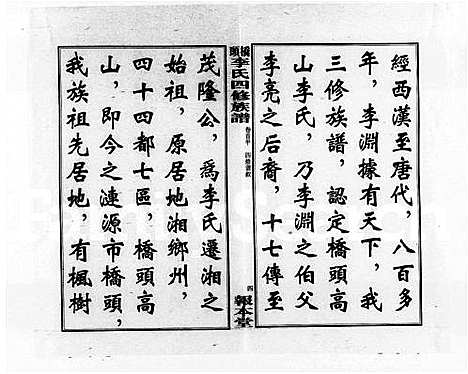 經西漢至唐代，八百多
年，李淵據有天下，我
三修族譜，認定橋頭高
山李氏，乃李淵之伯父
李亮之后裔，十七傳至
橋頭李氏四修族譜
四
報本堂
茂隆公，爲李氏遷湘之
始祖，原居地湘鄉州，
四十四都七區，橋頭高
山，即今之漣源市橋頭，
我族祖先居地，有楓樹